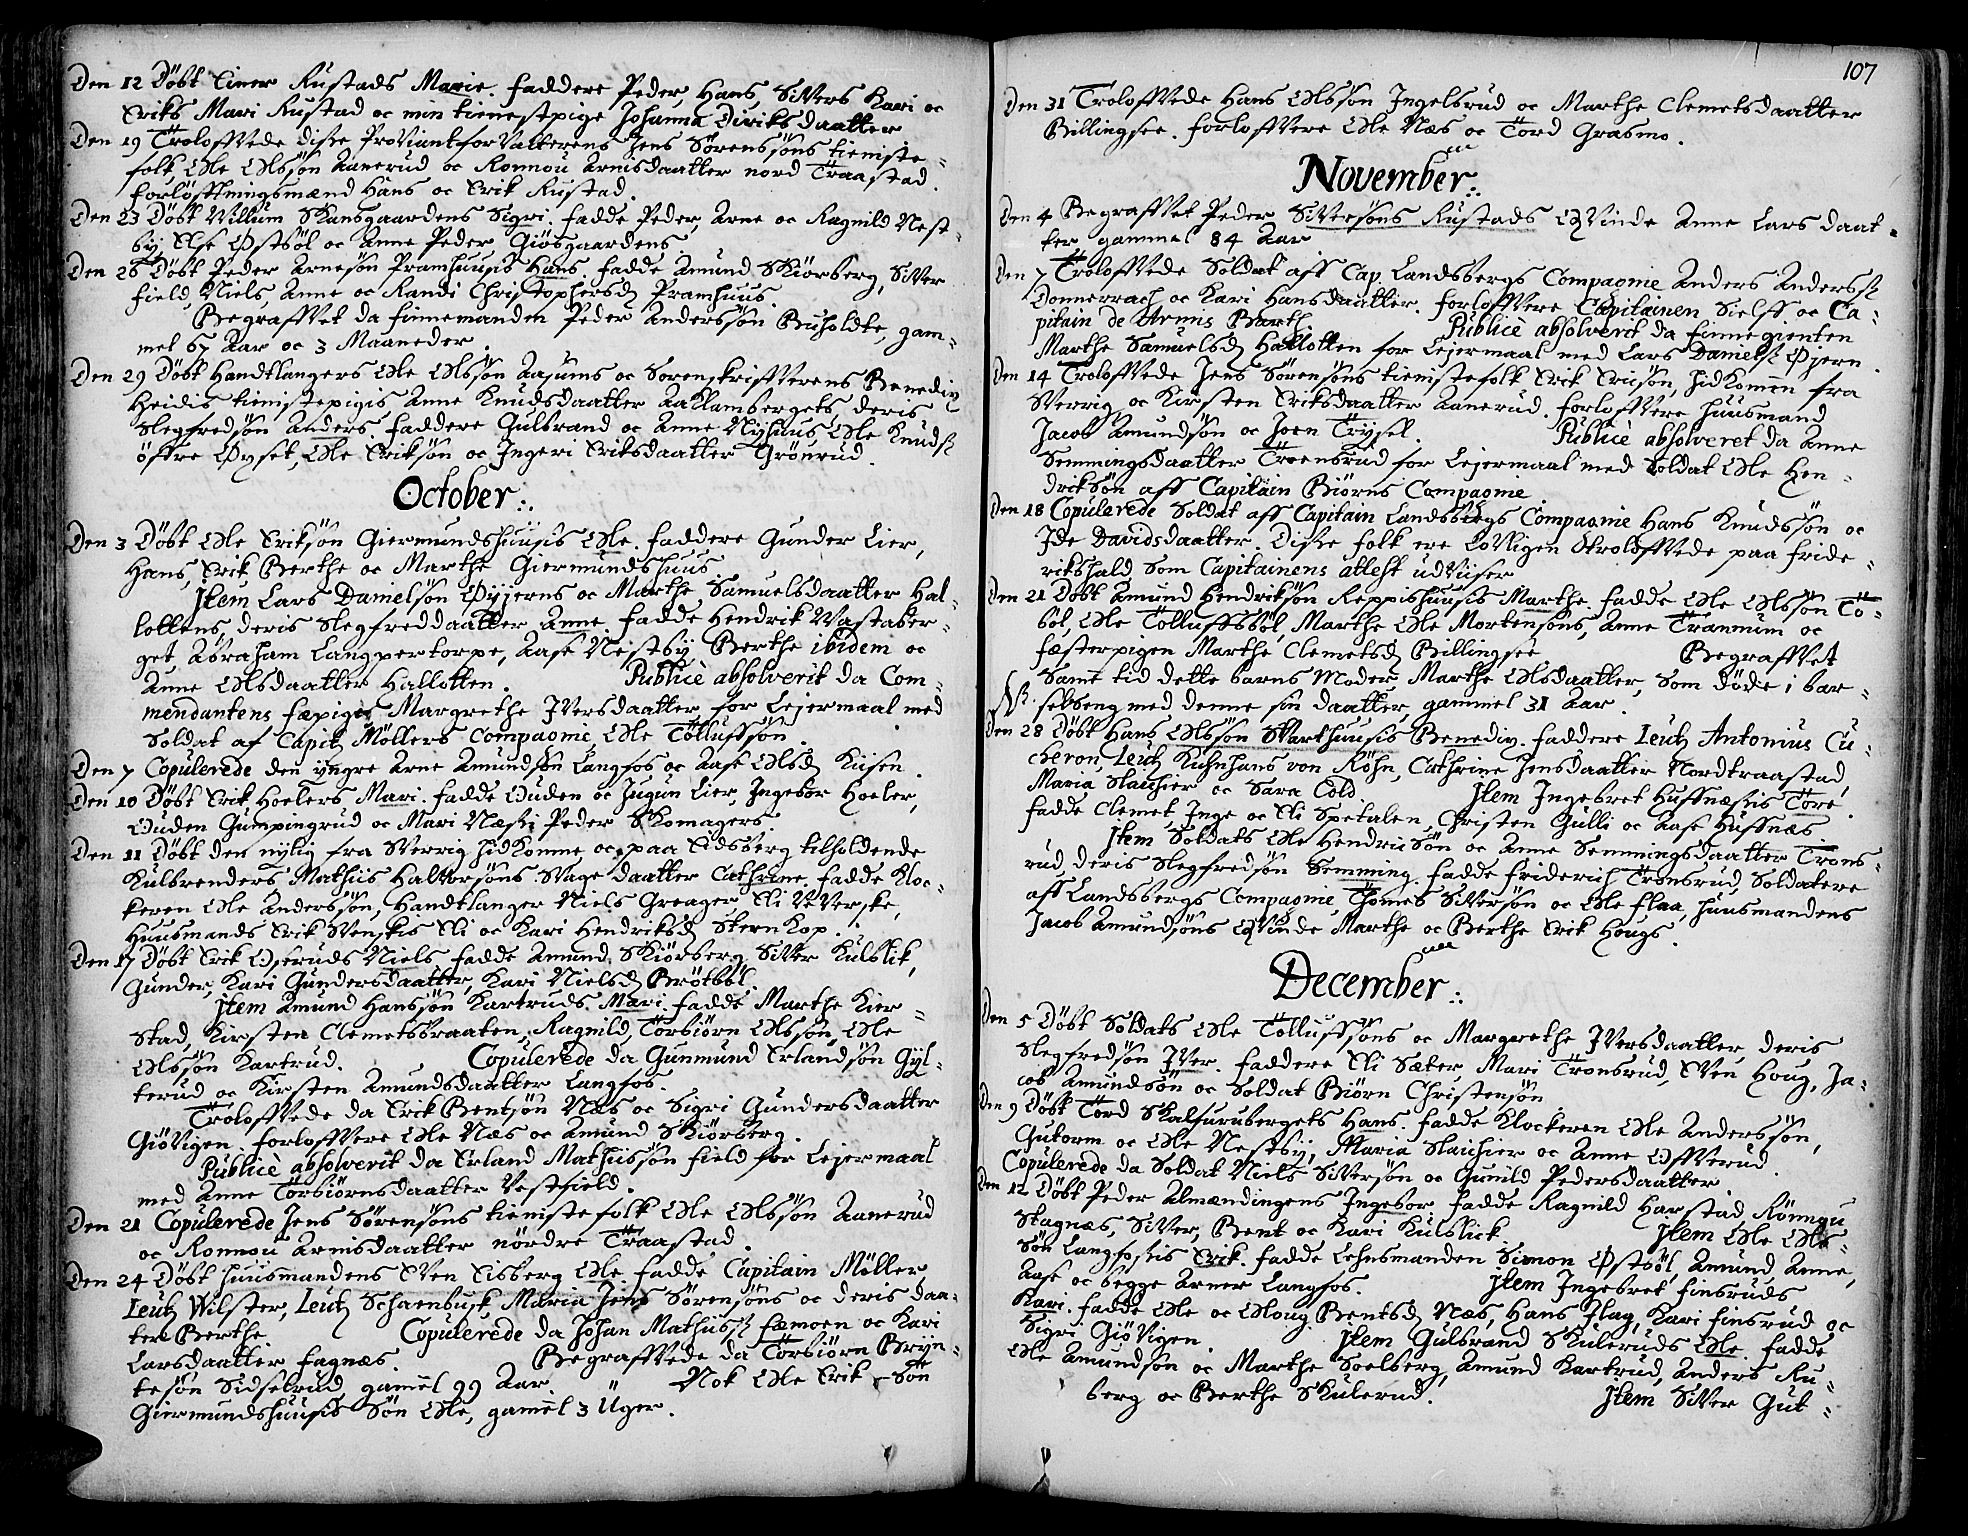 Den 12 Döbt Einer Rustads Marie. faddere Peder, Hans, Sivers Kari oc
Eriks Mari Rustad oc min tienestpige Johanna Diriksdaatter
Den 19 Troloffvede disse Proviantforvalterens Jens Sörenssöns tieniste=
folk Ole Olssön Aanerud oc Ronnou Arnisdaatter nord Traastad.
forlöffningsmænd Hans oc Erik Rustad.
Den 23 Döbt Villum Skansgaardens Sigri. fadde Peder, Arne oc Ragnild Nest=
by, Else Østböl oc Anne Peder Giösgaardens
Den 26 Döbt Peder Arnesön Pramhuusis Hans. fadde Amund Skiörberg, Siver
field, Niels, Anne oc Randi Christophersd Pramhuus.
Begraffvet da finnemanden Peder Anderssön Buholdte, gam=
mel 67 Aar oc 3 Maaneder.
Den 29 Döbt Handtlangers Ole Olssön Aasums oc Sorenskriffverens Benedix
Heidis tienistepigis Anne Knudsdaatter Aaklambergets deris
Slegfredsön Anders. faddere Gulbrand oc Anne Nyhuus, Ole Knuds
östre Øyset, Ole Eriksön oc Ingeri Eriksdaatter Grönrud.
October:.
Den 3 Döbt Ole Eriksön Giermundshuusis Ole. faddere Gunder Lier,
Hans, Erik Berthe oc Marthe Giermundshuus
Item Lars Danielsön Øyjerns oc Marthe Samuelsdaatter Hal=
lottens, deris Slegfreddaatter Anne. fadde Hendrik Vastaber=
get, Abraham Langpertorpe, Aase Nestby Berthe ibidem oc
Anne Olsdaatter Hallotten. Publicè absolverit da Com=
mendantens fæpiges Margrethe Iversdaatter for Lejermaal med
Soldat af Capit Möllers Compagnie Ole Tollufssön.
Den 7 Copulerede den yngre Arne Amundsön Langfos oc Aase Olsd Kiisen.
Den 10 Döbt Erik Hoelers Mari. fadde Ouden oc Jugun Lier, Ingebor Hoeler,
Ouden Gumpingrud oc Mari Næssi Peder Skomagers.
Den 11 Döbt den nylig fra Sverrig hidkomne oc paa Eidsberg tilholdende
Kulbrenders Mathiis Halvorsöns Svage daatter Cathrine, fadde Kloc=
keren Ole Anderssön, Handtlanger Niels Greager, Eli Veverske,
Huusmands Erik Svenskis Eli oc Kari Hendriksd Stern Kop.
Den 17 Döbt Erik Oseruds Niels fadde Amund Skiörberg Siver Kulblik,
Gunder, Kari Gundersdaatter, Kari Nielsd Brötböl.
Item Amund Hanssön Kartruds Mari. fadde Marthe Kier=
stad, Kirsten Clemetsbraaten, Ragnild, Torbiörn Olssön, Ole
Olssön Kartrud. Copulerede da Gunmund Erlandsön Gyl=
terud oc Kirsten Amundsdaatter Langfos.
Troloffvede da Erik Bentsön Næs oc Sigri Gundersdaatter
Giövigen. forloffvere Ole Næs oc Amund Skiörberg.
Publicè absolverit da Erland Mathiissön field for Lejermaal
med Anne Torbiörnsdaatter Vestfield.
Den 21 Copulerede Jens Sörensöns tienistefolk Ole Olssön Aanerud
oc Ronnou Arnisdaatter nördre Traastad.
Den 24 Döbt huusmandens Sven Eisberg Ole. fadde Capitain Möller
Leut Wilster, Leut Schaenbusk, Maria Jens Sörensöns oc deris daa=
ter Berthe. Copulerede da Johan Mathiiss fæmoen oc Kari
Larsdaatter fagnæs. Begraffvede da Torbiörn Bryn=
tesön Sidserud gamel 99 Aar. Nok Ole Erik=sön
Giermundshuusis Sön Ole, gamel 3 Uger.
107
Den 31 Troloffvede Hans Olssön Ingelsrud oc Marthe Clemetsdaatter
Billingsee. forloffvere Ole Næs oc Tord Grasmo.
November:.
Den 4 Begraffvet Peder Siversöns Rustads Qvinde Anne Larsdaat=
ter gammel 84 Aar
Den 7 Troloffvede Soldat aff Cap Landsbergs Compagnie Anders Anders
Donnerrach oc Kari Hansdaatter. forloffvere Capitainen Sielff oc Ca=
pitain de Armis Barth. Publicè absolverit da finnegienten
Marthe Samuelsd Hallotten for Lejermaal med Lars Daniels Øjern.
Den 14 Troloffvede Jens Sörensöns tienistefolk Erik Ericsön, hidkomin fra
Sverrig oc Kirsten Eriksdaatter Aanerud. forloffvere Huusmand
Jacob Amundsön oc Joen Trysel. Publicè absolveret da Anne
Semmingsdaatter Troensrud for Lejermaal med Soldat Ole Hen=
driksön aff Capitain Biörns Compagnie
Den 18 Copulerede Soldat aff Capitain Landsbergs Compagnie Hans Knudssön oc
Ide Davidsdaatter. Disse folk ere Lovligen Troloffvede paa Fride=
rikshald Som Capitainens attest udviiser
Den 21 Döbt Amund Hendriksön Reppishuusis Marthe. fadde Ole Olssön To=
böl, Ole Tolluffsböl, Marthe Ole Mortensöns, Anne Trannum oc
fæsterpigen Marthe Clemetsd Billingsee Begraffvet
NB. Samme tid dette barns Moder Marthe Olsdaatter, som döde i bar=
selseng med denne sin daatter, gammel 31 Aar.
Den 28 Döbt Hans Olssön Svarthuusis Benedix. faddere Leut Antonius Cu=
cheron, Leut Kuhnhans von Röhn, Cathrine Jensdaatter Nordtraastad,
Maria Slauhier oc Sara Cold. Item Ingebret Huffnæssis Tore.
fadde Clemet, Inge oc Eli Spetalen, Christen Gulli oc Aase Huffnæs
Item Soldats Ole Hendricsön oc Anne Semmingsdaatter Trons=
rud, deris Slegfredsön Semming. fadde Friderich Tronsrud, Soldatere
aff Landsbergs Compagnie, Thomes Siversön oc Ole Flaa, Huusmandens
Jacob Amundsöns Qvinde Marthe oc Berthe Erik Hougs.
December:.
Den 5 Döbt Soldats Ole Tolluffsöns oc Margrethe Iversdaatter deris
Slegfredsön Iver. faddere Eli Sæter, Mari Tronsrud, Sven Houg, Ja=
cob Amundsön oc Soldat Biörn Christensön
Den 9 Döbt Tord Skalfurubergets Hans. fadde Klockeren Ole Anderssön,
Gutorm oc Ole Nestby, Maria Slauhier oc Anne Offverud.
Copulerede da Soldat Niels Siversön oc Gunild Pedersdaatter
Den 12 Döbt Peder Almændingens Ingebor. fadde Ragnild Harstad Rönnou
Skagnæs, Siver, Bent oc Kari Kulblick. Item Ole Ols=
sön Langfossis Erik. fadde Lehnsmanden Simon Østböl, Amund Anne,
Aase oc begge Arner Langfos. Item Ingebret Finsruds
Kari. fadde Ole oc Oloug Bentsd Næs, Hans Flag, Kari Finsrud oc
Sigri Giövigen. Item Gulbrand Skuleruds Ole. fadde
Ole Amundsön oc Marthe Soelberg, Amund Kartrud, Anders Ru=
berg oc Berthe Skulerud. Item Siver Gut=